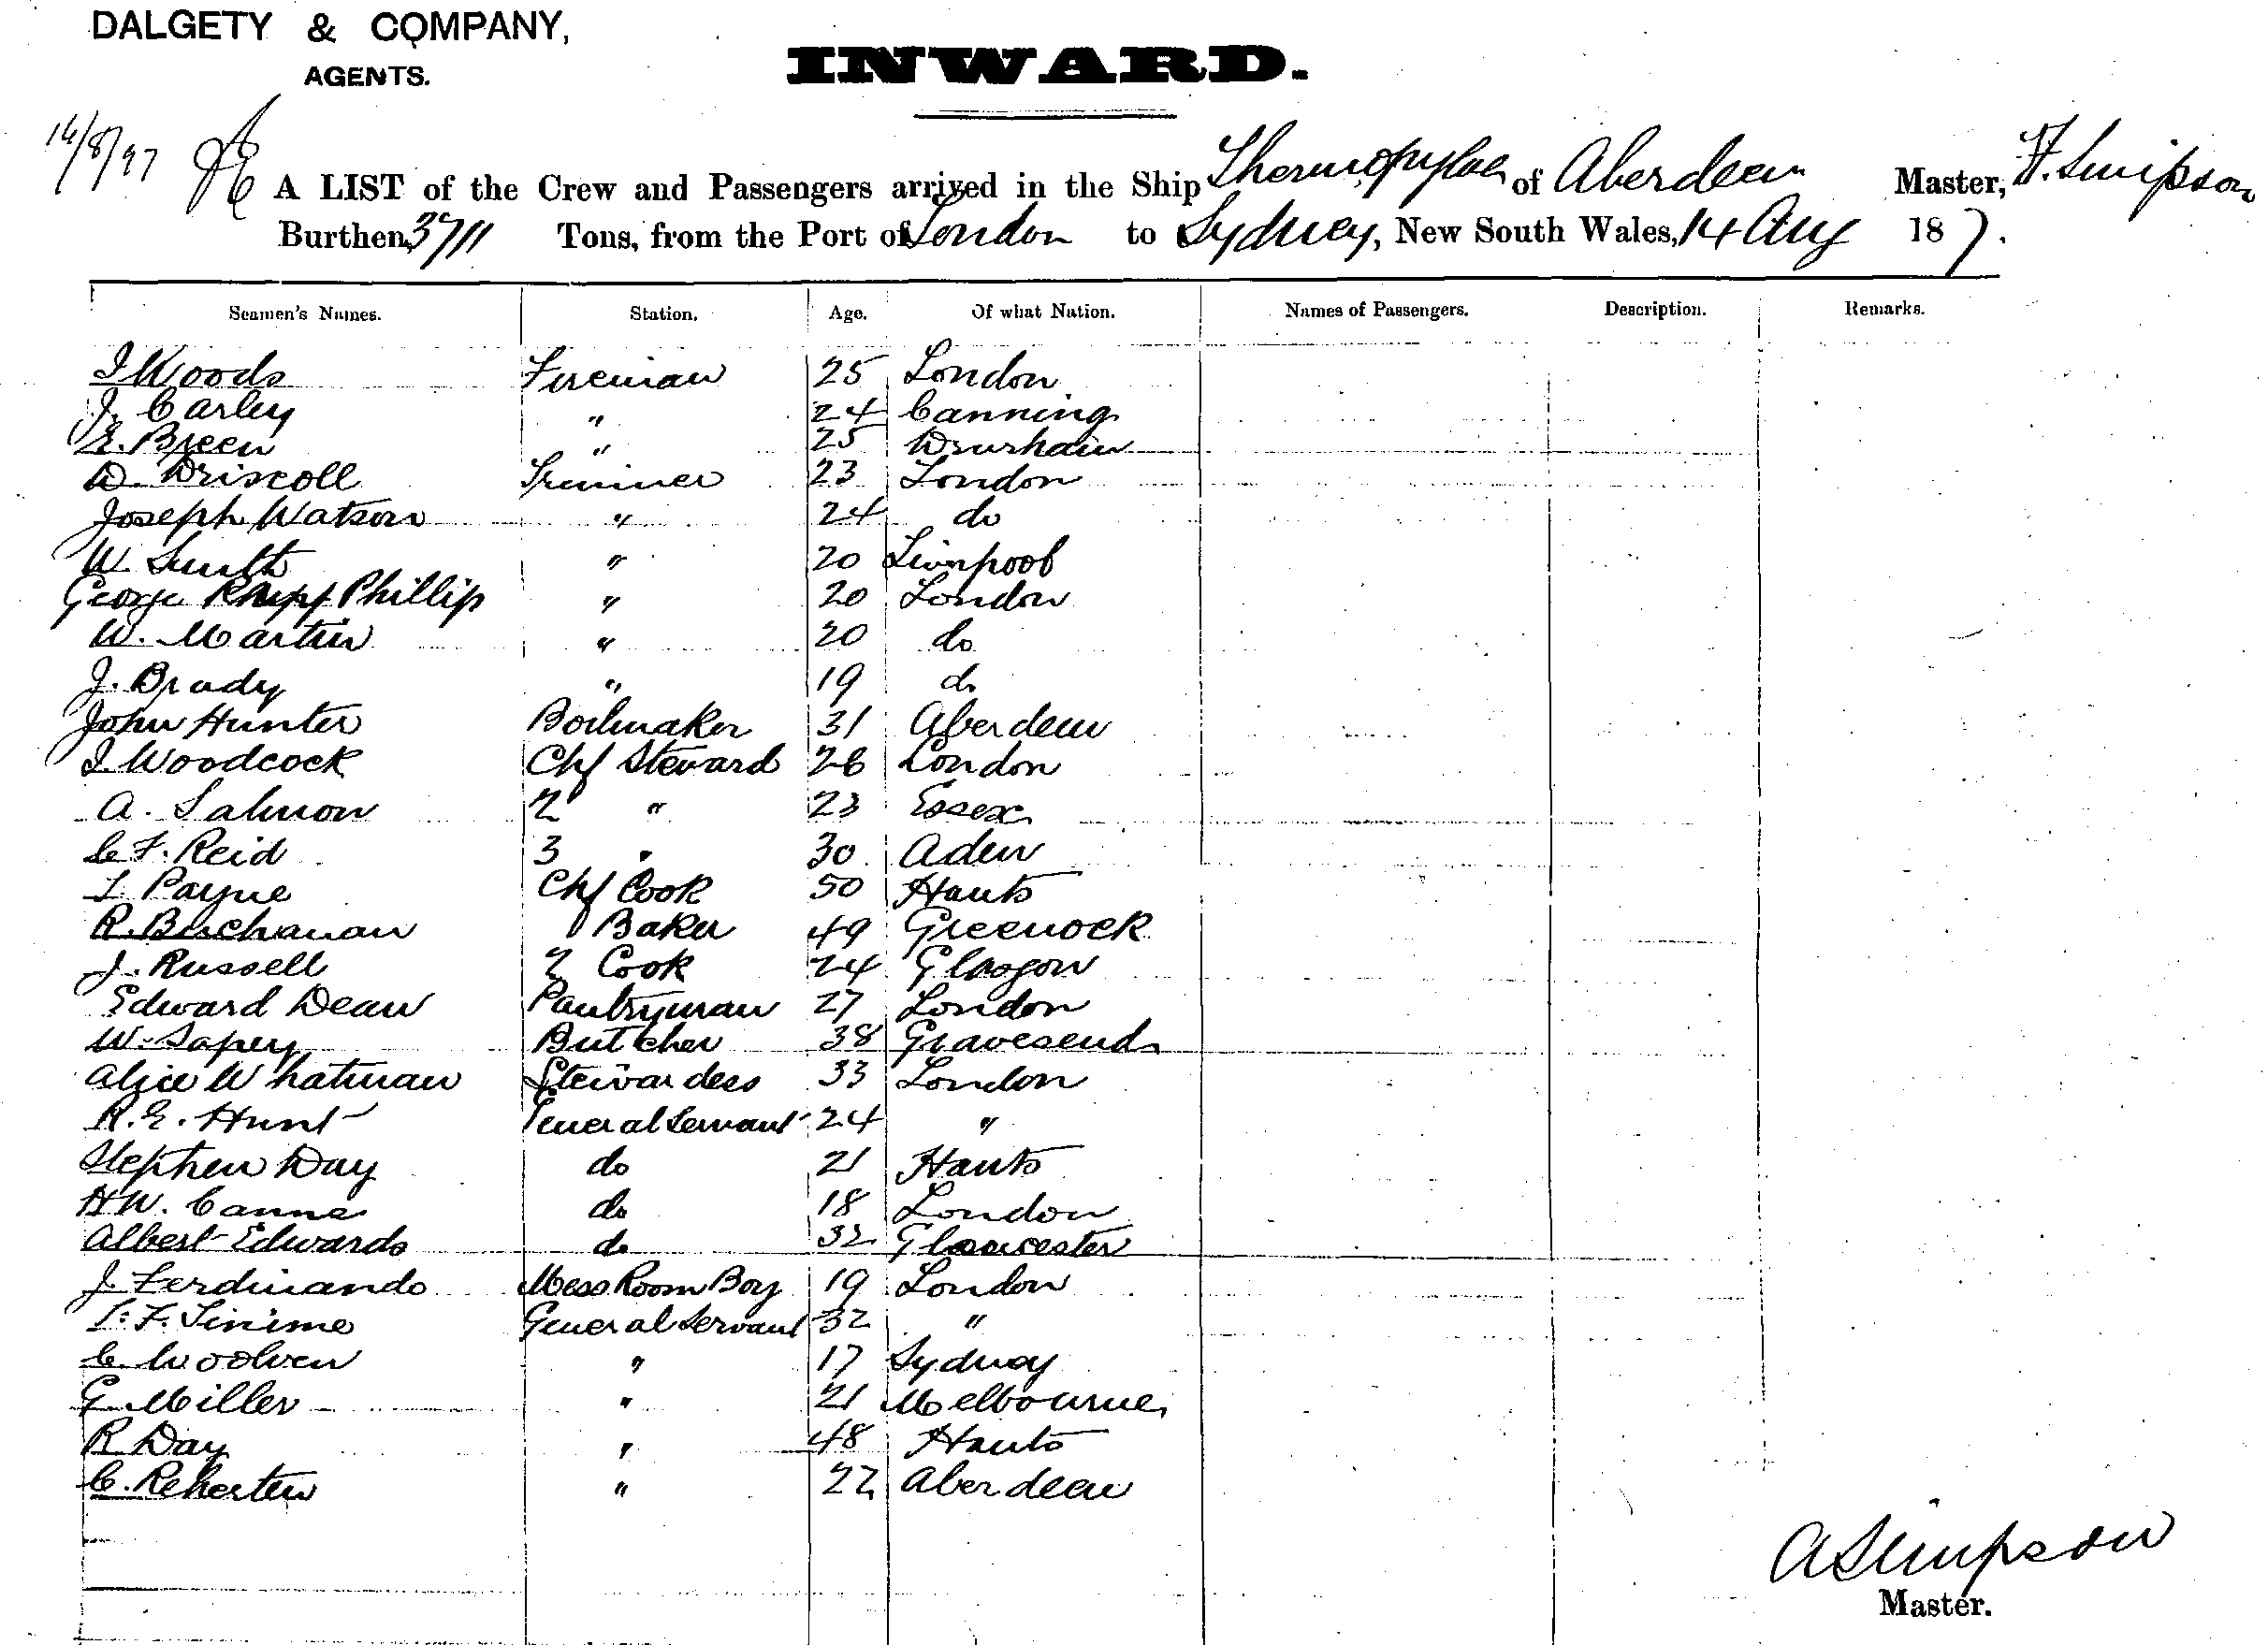 DALGETY & COMPANY,
AGENTS.
INWARD.
14/8/97
A LIST of the Crew and Passengers arrived in the Ship Thermopylae of Aberdeen Master, Simpson
Burthen, 3711 Tons, from the Port of London to Sydney, New South Wales, 14 Aug 18 7.
Seamen's Names. Station. Age. Of what Nation. Names of Passengers. Description. Remarks.
Woods Fireman 25 London
J. Carley " 24 Canning
E. Breen " 25
D. Driscoll Trimmer 23 London
Joseph Watson " 24 do
W. Smith " 20 Liverpool
George Phillip " 20 London
W. Martin " 20 do
J. Brady " 19 do
John Hunter Boilmaker 31 Aberdeen
J. Woodcock Chf Steward 26 London
A. Salmon 2 " 23 Essex
C F. Reid 3 " 30 Aden
Payne Chf Cook 50 Hants
R. Buchanan Baker 49 Greenock
J. Russell 2 Cook 24 Glasgow
Edward Dean Pantryman 27 London
W. Butcher 38 Gravesend
Alice Whatman Stewardess 33 London
R. E. Hunt General Servant 24 "
Stephen Day do 21 Hants
H W. Canns do 18 London
Albert Edwards do 32 Gloucester
J. Ferdinando Mess Room Boy 19 London
General Servant 32 "
C. Woolven " 17 Sydney
G. Miller " 21 Melbourne
R Day " 48 Hants
C. " 22 Aberdeen
A Simpson
Master.